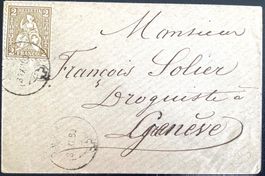 Monsieur
François Solier
Droguiste à
Genève